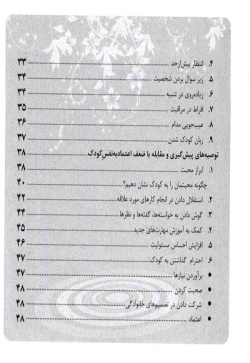 ۴. انتظار بیش‌ازحد ۳۳
۵. زیر سوال بردن شخصیت ۳۴
۶. زیاده‌روی در تنبیه ۳۴
۷. افراط در مراقبت ۳۵
۸. عیب‌جویی مدام ۳۶
۹. زبان کودک شدن ۳۷
توصیه‌های پیش‌گیری و مقابله با ضعف اعتمادبه‌نفس کودک ۳۸
۱. ابراز محبت ۳۸
چگونه محبتمان را به کودک نشان دهیم؟ ۴۰
۲. استقلال دادن در انجام کارهای مورد علاقه ۴۲
۳. گوش دادن به خواسته‌ها، گفته‌ها و نظرها ۴۴
۴. کمک به آموزش مهارت‌های جدید ۴۵
۵. افزایش احساس مسئولیت ۴۶
۶. احترام گذاشتن به کودک ۴۷
برآوردن نیازها ۴۷
صحبت کردن ۴۸
شرکت دادن در تصمیم‌های خانوادگی ۴۸
اعتماد ۴۸